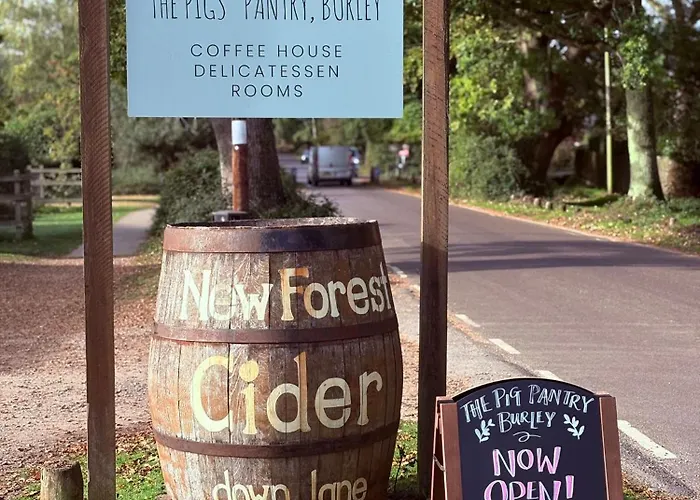 THE PIGS' PANTRY, BURLEY
COFFEE HOUSE
DELICATESSEN
ROOMS
New Forest
Cider
down lane
THE PIG PANTRY
BURLEY
NOW
OPEN!